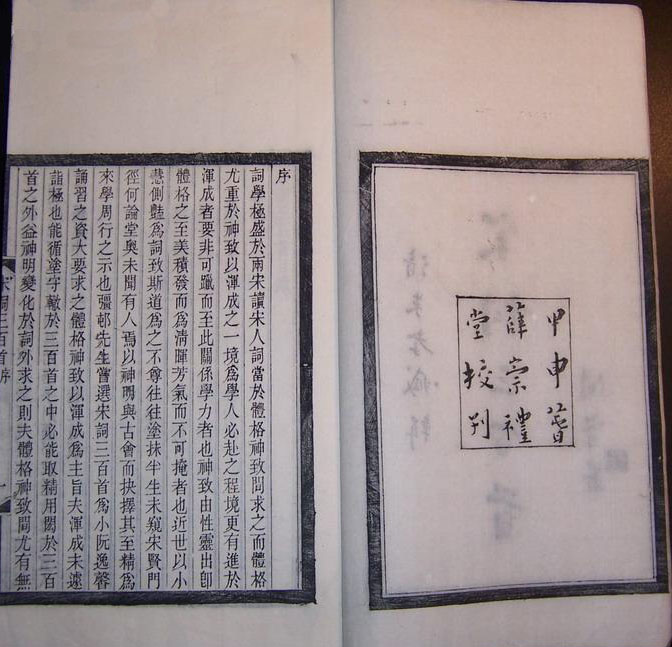 甲申
薛崇禮
堂校刊
清朱孝臧輯
序
詞學極盛於兩宋讀宋人詞當於體格神致間求之而體格
尤重於神致以渾成之一境爲學人必赴之程境更有進於
渾成者要非可躐而至此關係學力者也神致由性靈出卽
體格之至美積發而爲清暉芳氣而不可掩者也近世以小
慧側豔爲詞致斯道爲之不尊往往塗抹半生未窺宋賢門
徑何論堂奧未聞有人焉以神明與古會而抉擇其至精爲
來學周行之示也彊邨先生嘗選宋詞三百首爲小阮逸馨
誦習之資大要求之體格神致以渾成爲主旨夫渾成未遽
詣極也能循塗守轍於三百首之中必能取精用閎於三百
首之外益神明變化於詞外求之則夫體格神致間尤有無
宋詞三百首序